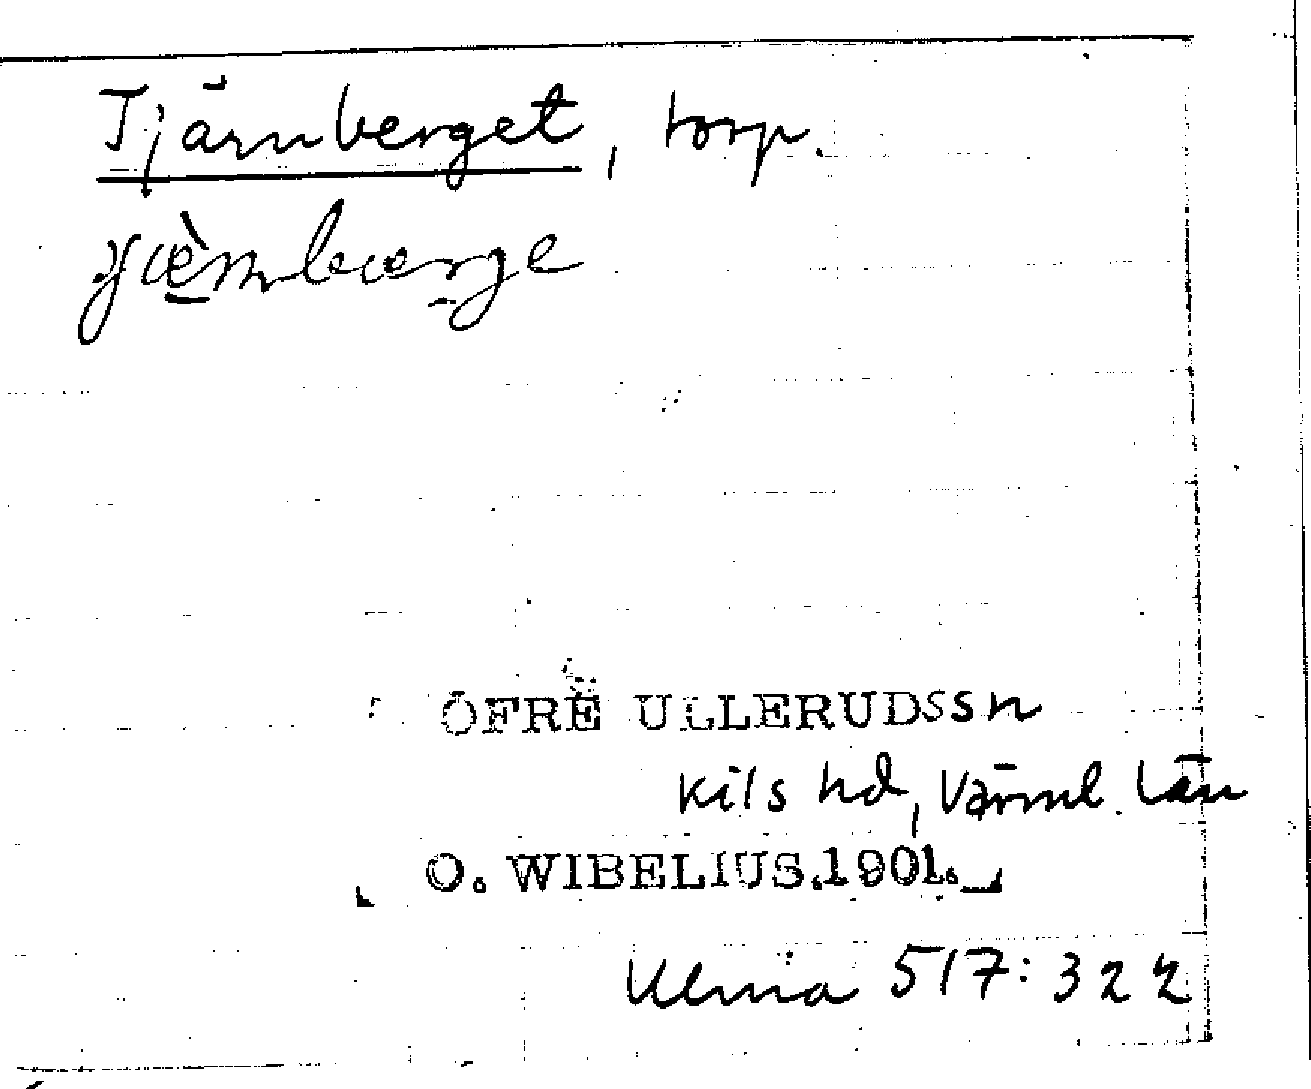 Tjärnberget, torp.
ÖFRE ULLERUDSSN
Kils hd, Värml. län
O. WIBELIUS.1901.
Ulma 517:322